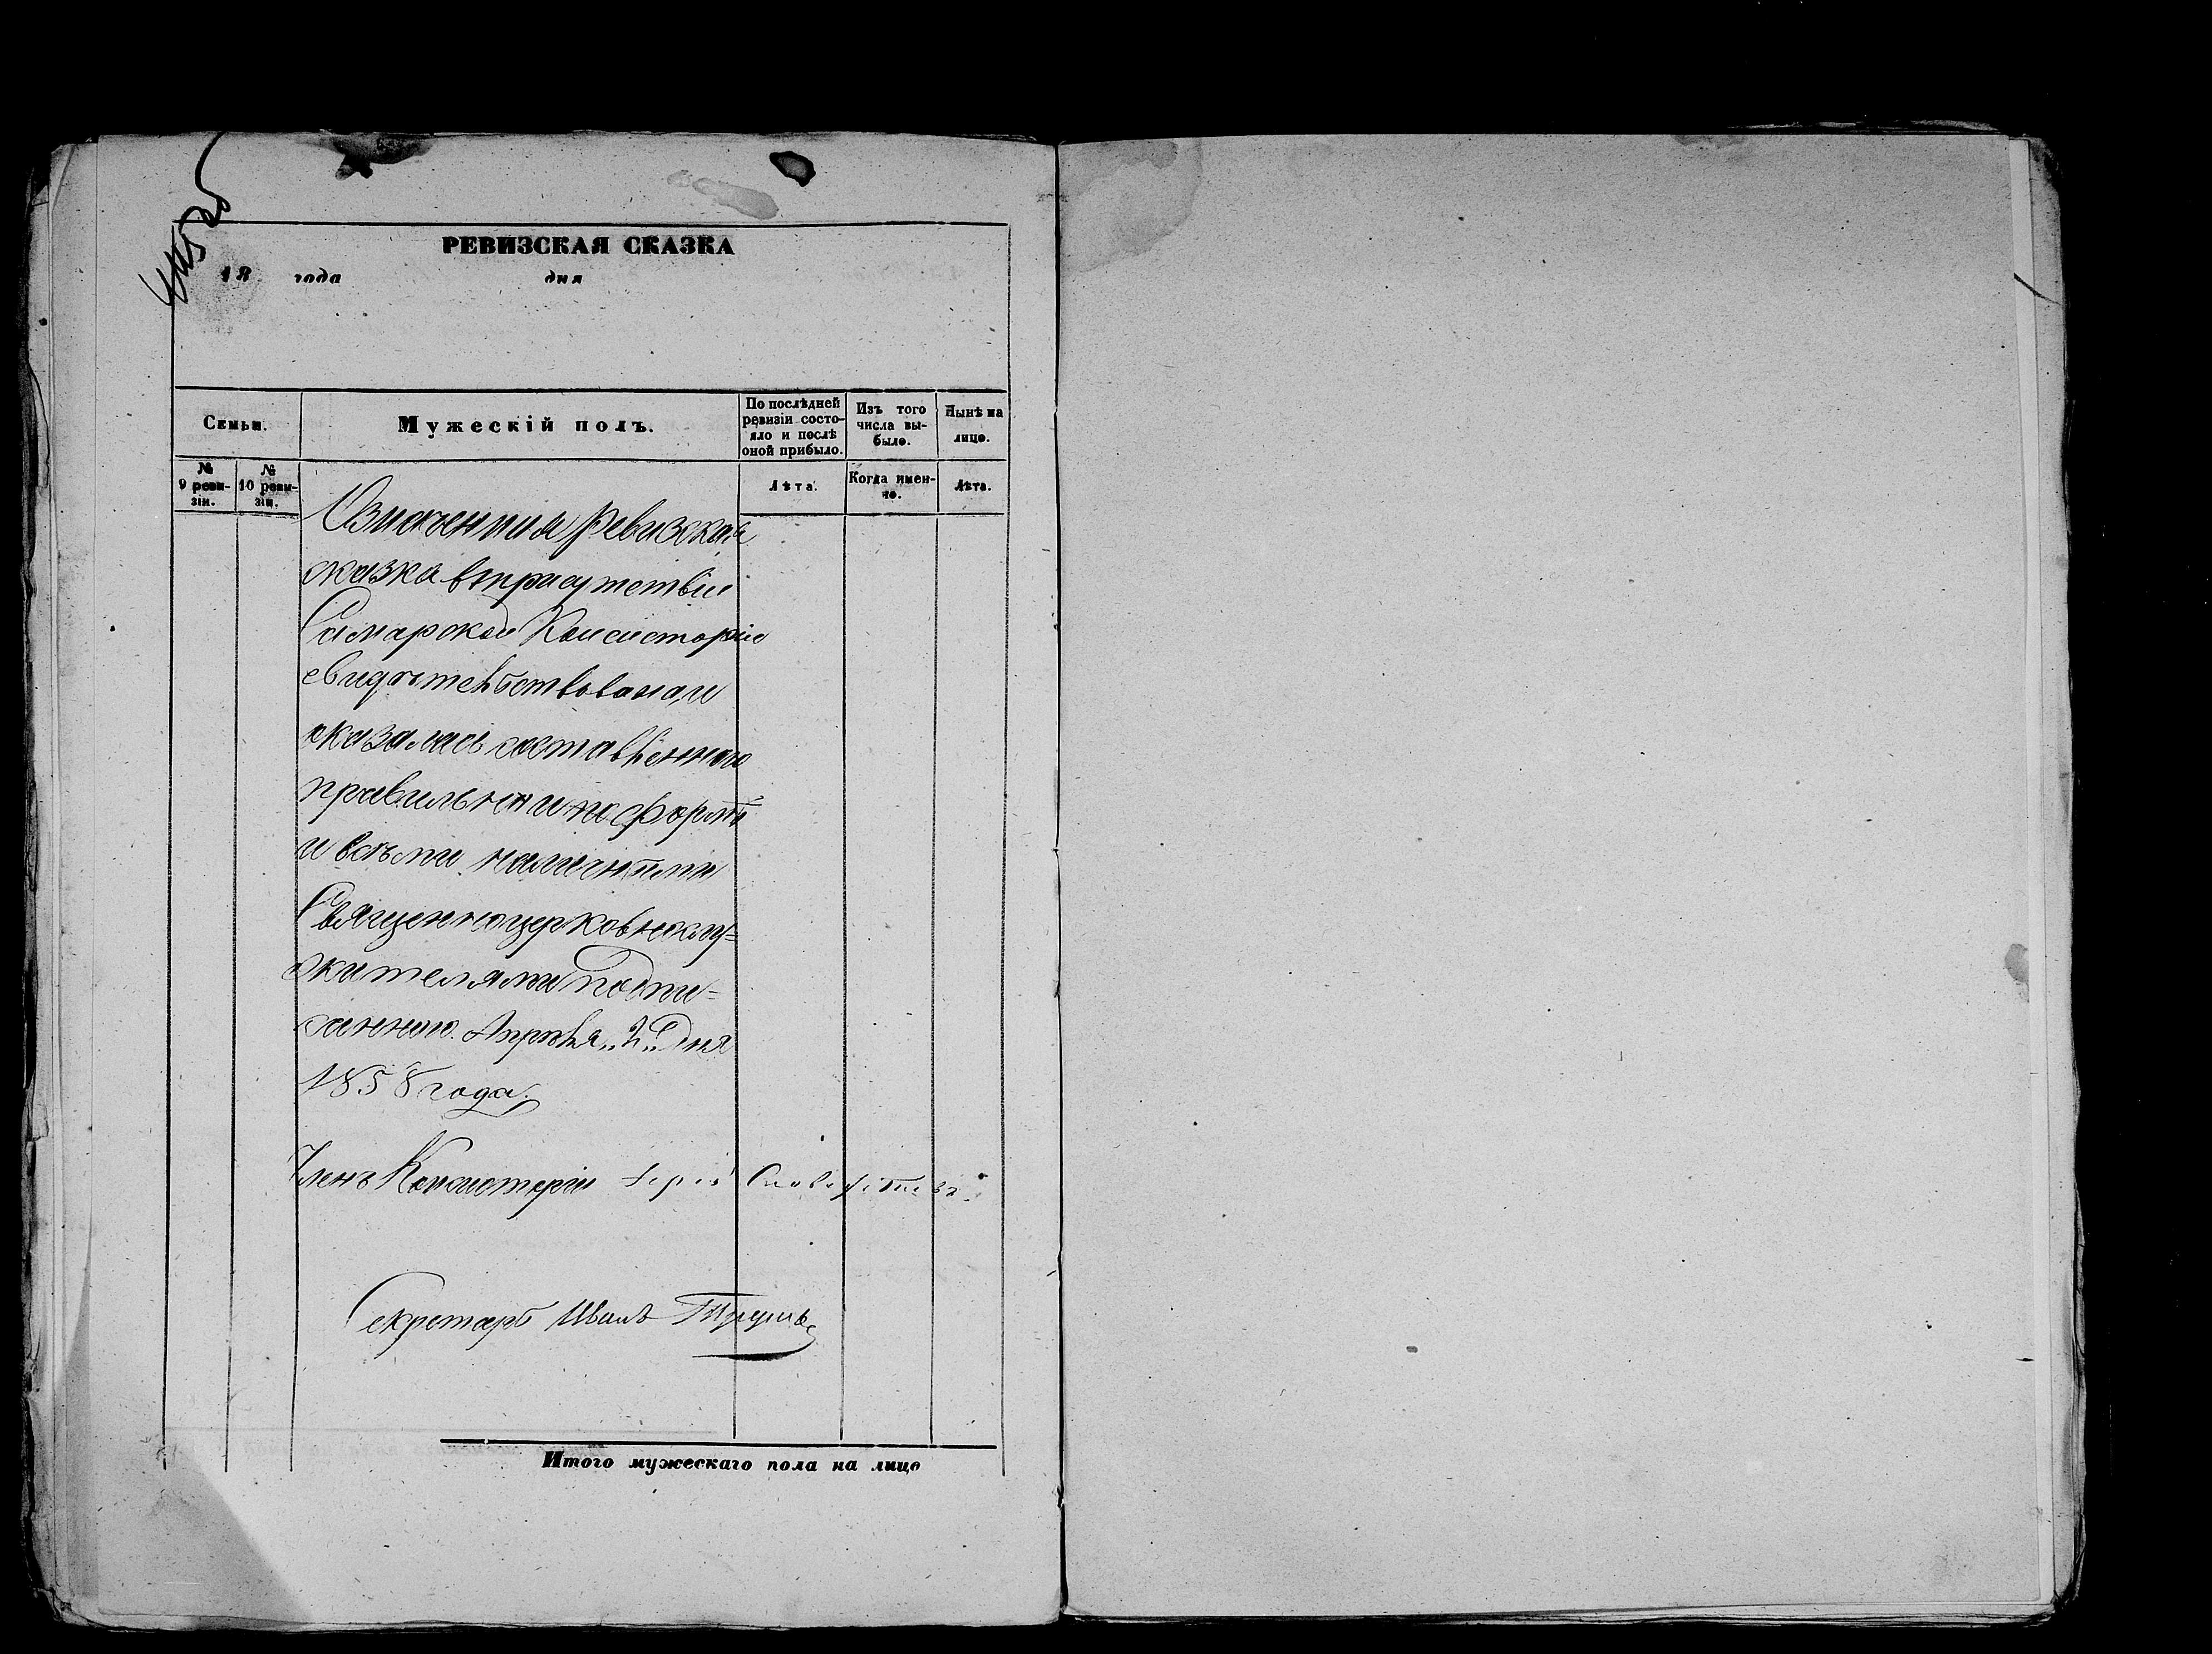 РЕВИЗСКАЯ СКАЗКА
18 года дня
Семьи.
Мужескій полъ.
По послѣдней ревизіи состояло и послѣ оной прибыло.
Изъ того числа выбыло.
Нынѣ на лицо.
№ 9 ревизіи.
№ 10 ревизіи.
Лѣта.
Когда именно.
Лѣта.
Ревизская
сказка въ присутствіи
Самарской Консисторіи
свидѣтельствована, и
оказалась составленною
правильно и по формѣ
и всѣми наличными
Священноцерковнослу=
жителями подпи=
санною. Апрѣля „2„ дня
1858 года.
Членъ Консисторіи
Секретарь Иванъ
Итого мужескаго пола на лицо